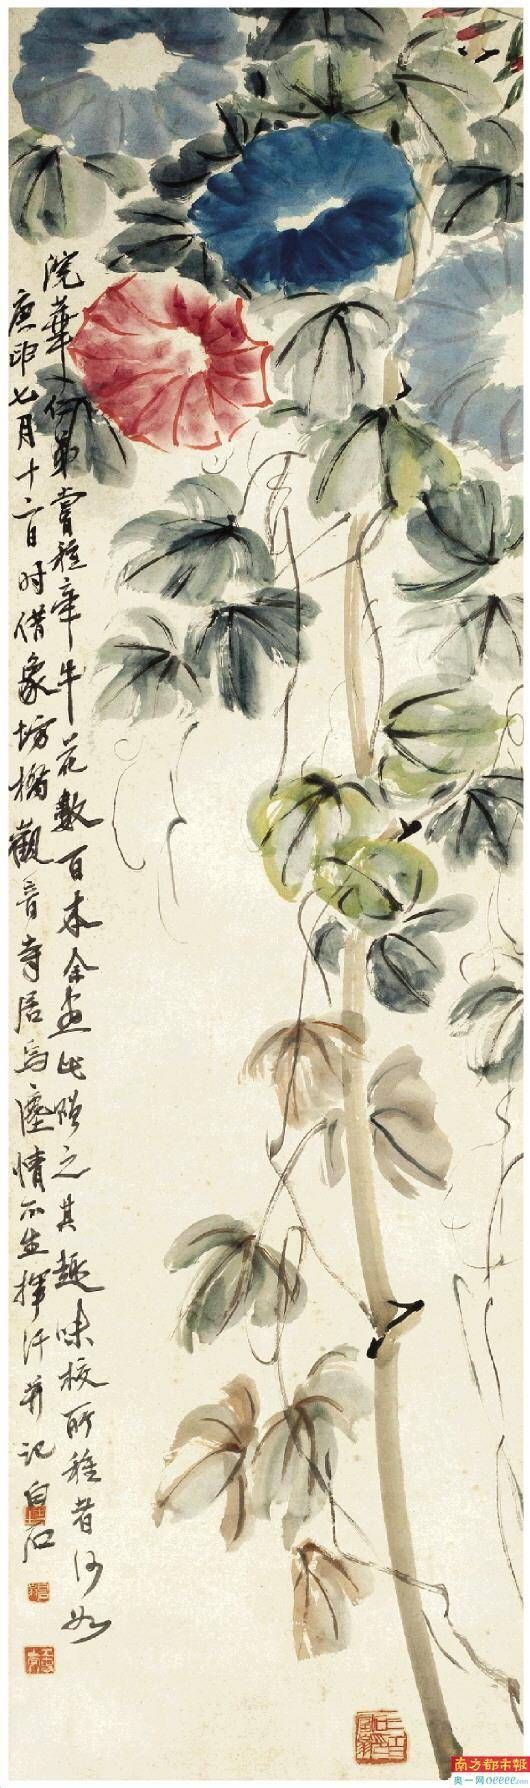 院華仁弟嘗種牽牛花數百本余畫此贈之其趣味校所種者何如
庚申七月十二日时借象坊橋觀音寺居焉塵情不生揮汗并记白石
南方都市報
奥一网oeeee.com